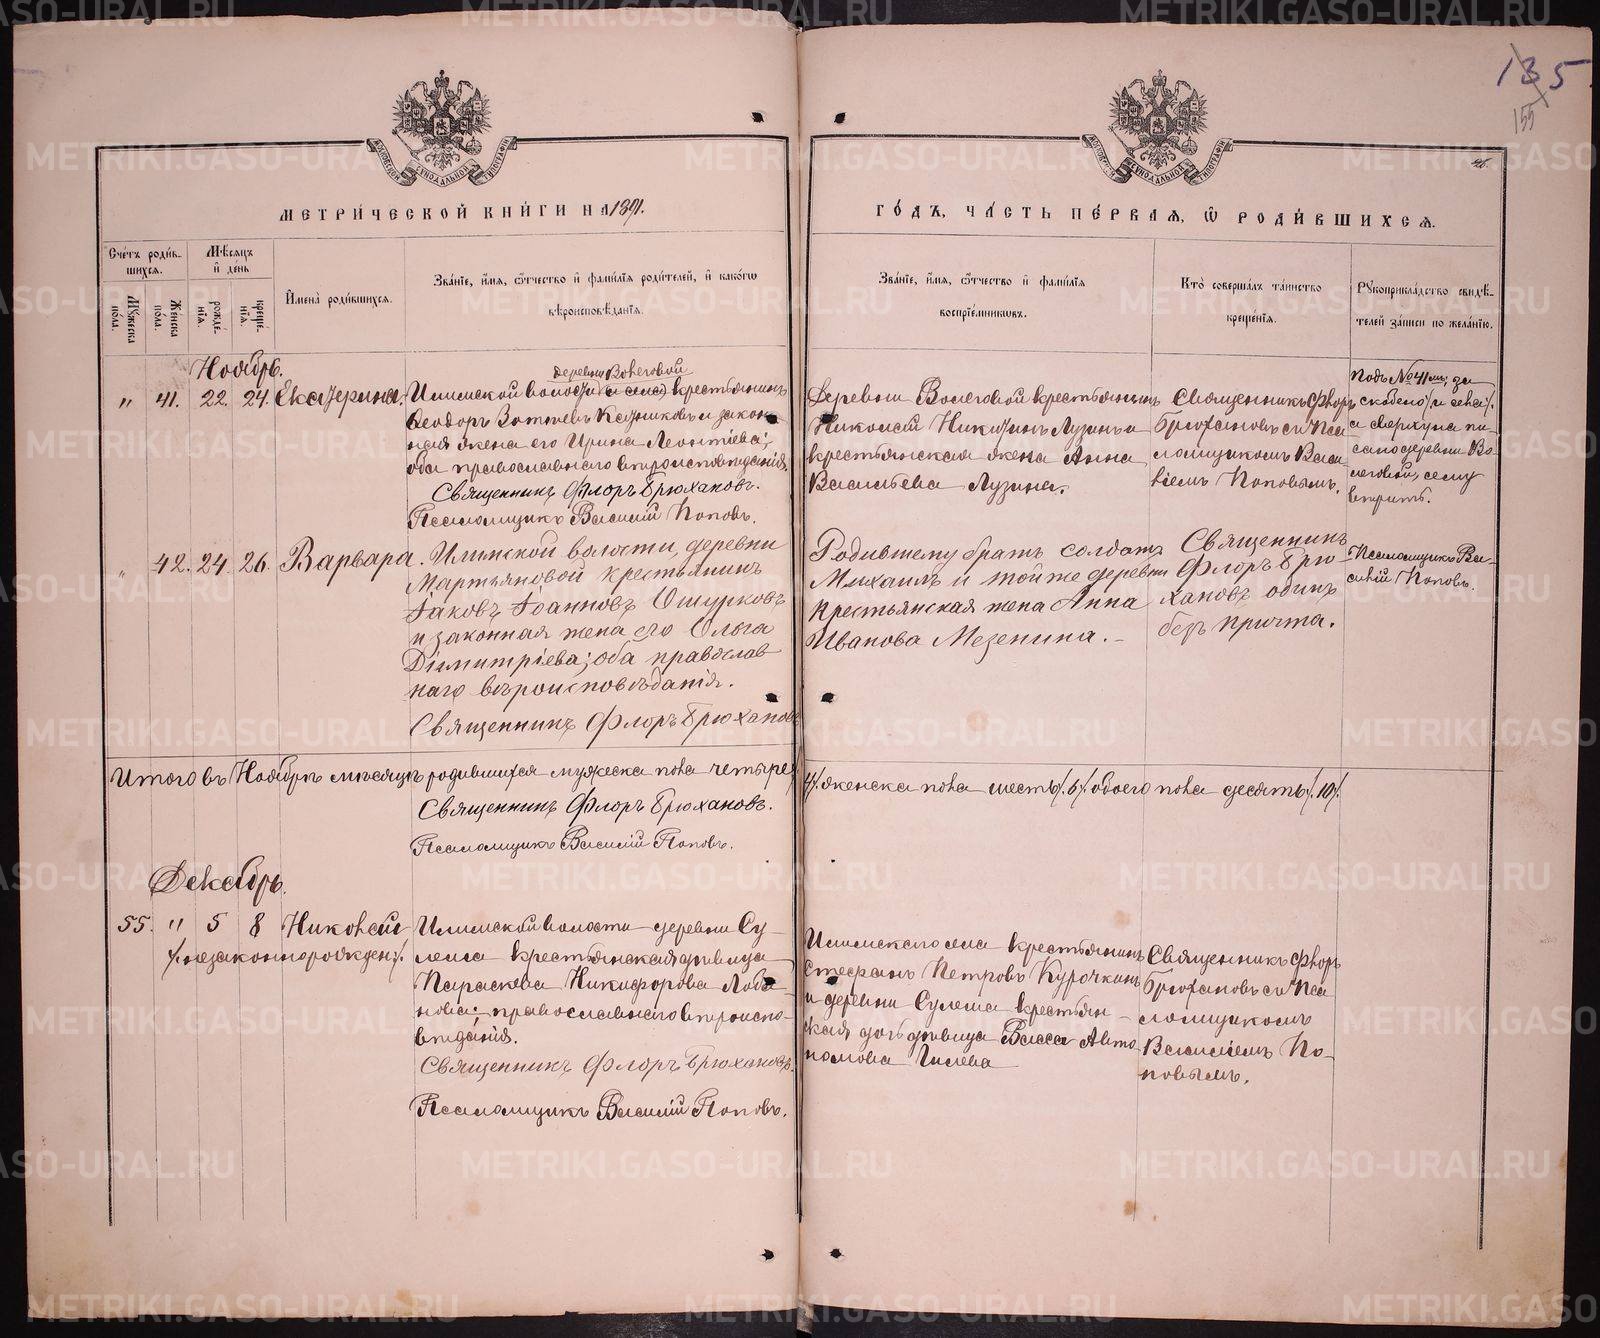 135
155
46.
МОСКОВСКОЙ СѴНОДАЛЬНОЙ ТИПОГРАФІИ
МОСКОВСКОЙ СѴНОДАЛЬНОЙ ТИПОГРАФІИ
МЕТРИЧЕСКОЙ КНИГИ НА 1891.
ГОДЪ, ЧАСТЬ ПЕРВАЯ, Ѡ РОДИВШИХСЯ.
Счетъ родив-
шихся.
Мужеска пола.
Женска пола.
Мѣсяцъ
и день
рожде-
нїя.
креще-
нїя.
Имена родившихся.
Званїе, имя, ѿчество и фамилїя родителей, и какогѡ
вѣроисповѣданїя.
Званїе, имя, ѿчество и фамилїя
воспрїемникѡвъ.
Кто совершалъ таинство
крещенїя.
Рукоприкладство свидѣ-
телей записи по желанїю.
Ноябрь.
" 41. 22. 24. Екатерина.
деревни Волеговой
Илимской волости (и села) крестьянинъ
Ѳеодоръ Зотіевъ Катниковъ и закон-
ная жена его Ирина Леонтіева;
оба православнаго вѣроисповѣданія.
Священникъ Флоръ Брюхановъ.
Псаломщикъ Василій Поповъ.
Деревни Волеговой крестьянинъ
Николай Никитинъ Лузинъ и
крестьянская жена Анна
Васильева Лузина.
Священникъ Флоръ
Брюхановъ съ Пса
ломщикомъ Васи
ліемъ Поповымъ.
Подъ № 41 мъ, за
скоблено /и села/.
а сверху на пи-
сано деревни Во
леговой, сему
вѣрить.
" 42. 24. 26. Варвара.
Илимской волости, деревни
Мартьяновой крестьянинъ
Іаковъ Іоанновъ Ошурковъ
и законная жена его Ольга
Димитріева; оба православ
наго вѣроисповѣданія.
Священникъ Флоръ Брюхановъ
Родившему братъ солдатъ
Михаилъ и той же деревни
крестьянская жена Анна
Иванова Мезенина. -
Священникъ
Флоръ Брю
хановъ одинъ
безъ причта.
Псаломщикъ Ва-
силій Поповъ.
Итого въ Ноябрѣ мѣсяцѣ родившихся мужеска пола четыре /4/. женска пола шесть /6/. обоего пола десять /10/.
Священникъ Флоръ Брюхановъ.
Псаломщикъ Василій Поповъ.
Декабрь.
55. " 5 8 Николай
/.незаконнорожден/.
Илимской волости деревни Су-
лема крестьянская дѣвица
Параскева Никифорова Лоба-
нова; православнаго вѣроиспо-
вѣданія.
Священникъ Флоръ Брюхановъ.
Псаломщикъ Василій Поповъ.
Илимскаго села крестьянинъ
Стефанъ Петровъ Курочкинъ
и деревни Сулема крестьян-
ская дочь дѣвица Васса Авто
номова Гилева
Священникъ Флоръ
Брюхановъ съ Пса
ломщикомъ
Василіемъ По-
повымъ.
METRIKI.GASO-URAL.RU